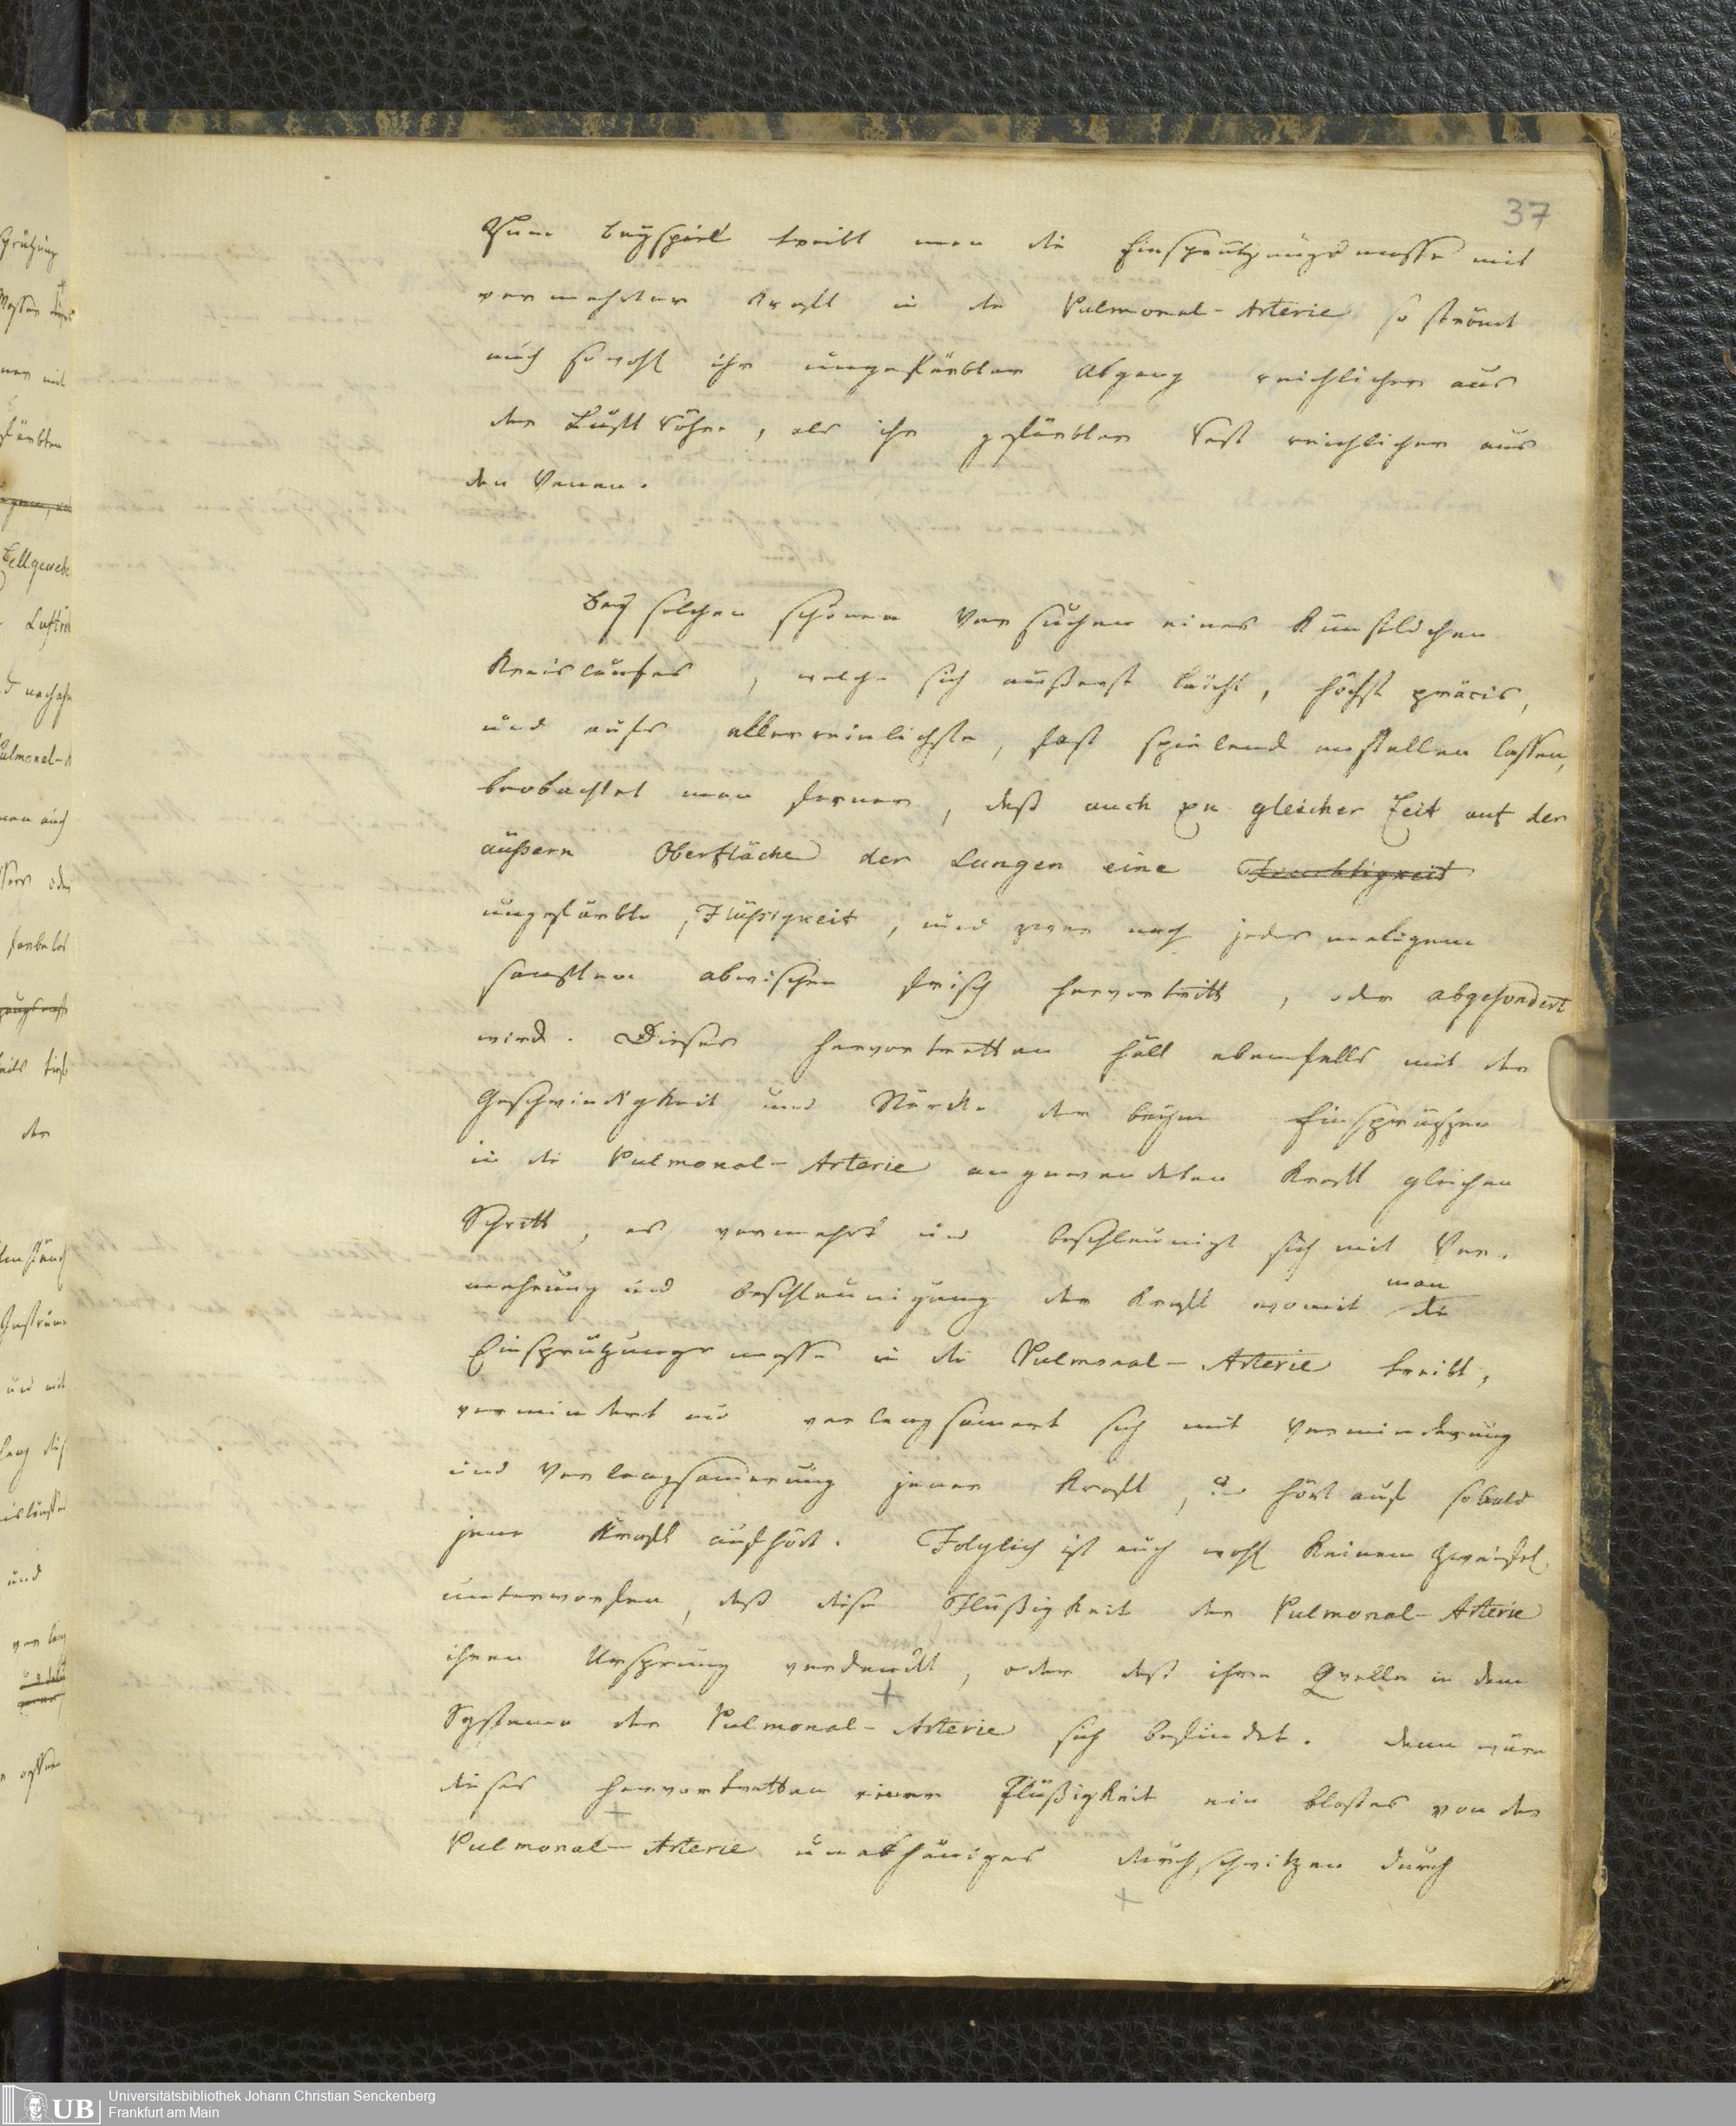 37
Zum Beyspiel treibt man die Einsprützungsmasse mit
vermehrter Kraft in die Pulmonal-Arterie so strömt
auch sowohl ihr ungefärbter Abgang reichlicher aus
der Luftröhre, als ihr gefärbter Rest reichlicher aus
den Venen.
Bey solchen schönen Versuchen eines künstlichen
Kreislaufes, welche sich äußerst leicht, höchst präcis,
und aufs allerreinlichste, fast spielend anstellen lassen,
beobachtet man ferner, daß auch zu gleicher Zeit auf der
äußern Oberfläche der Lungen eine Feuchtigkeit
ungefärbte Flüßigkeit, und zwar nach jedesmaligem
sanften abwischen frisch hervortritt, oder abgesondert
wird. Dieses Hervortretten hält ebenfalls mit der
Geschwindigkeit und Stärke der beym Einsprützen
in die Pulmonal-Arterie angewendeten Kraft gleichen
Schritt, es vermehrt und beschleunigt sich mit Ver-
mehrung und Beschleunigung der Kraft womit man die
Einsprützungsmasse in die Pulmonal-Arterie treibt,
vermindert und verlangsamert sich mit Verminderung
und Verlangsamerung jener Kraft, und hört auf sobald
jene Kraft aufhört. Folglich ist auch wohl keinem Zweifel
unterworfen, daß diese Flüßigkeit der Pulmonal-Arterie
ihren Ursprung verdankt, oder daß ihre Quelle in dem
Systeme der Pulmonal-Arterie sich befindet. Denn wäre
dieses Hervortretten einer Flüßigkeit ein bloßes von der
Pulmonal-Arterie unabhäniges durchschwitzen durch
UB
Universitätsbibliothek Johann Christian Senckenberg
Frankfurt am Main